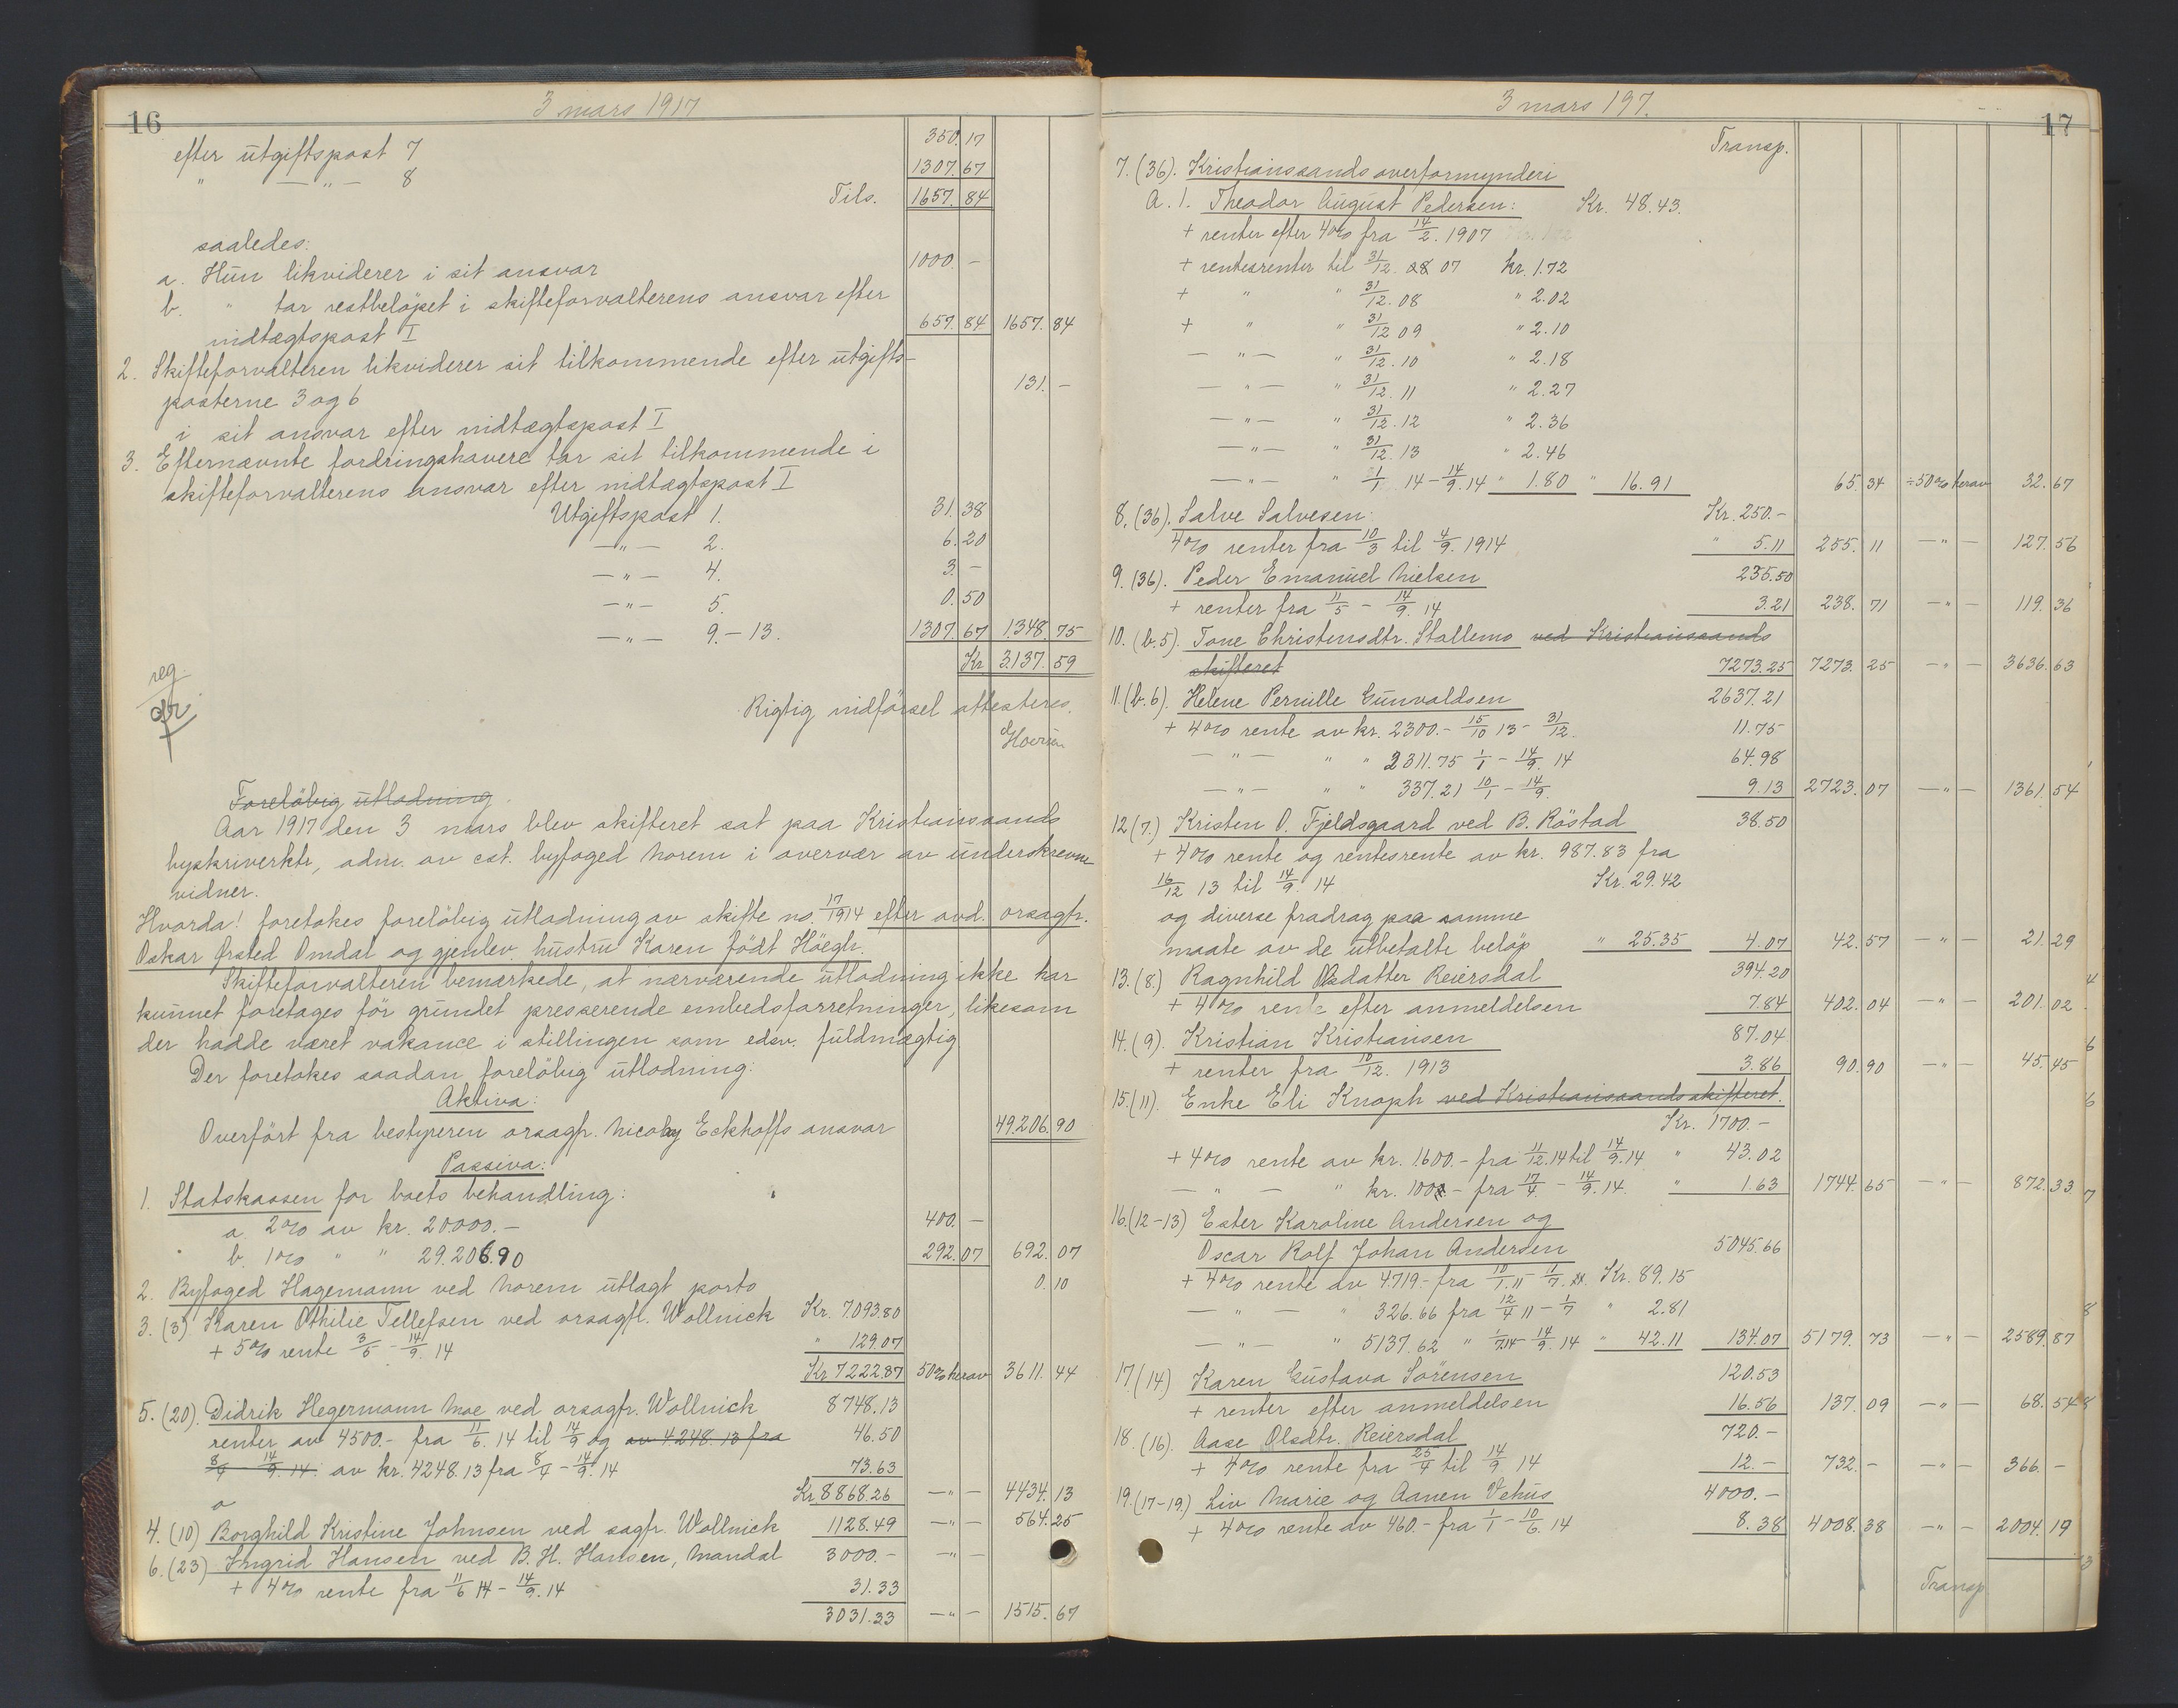 16
3 mars 1917
efter utgiftspost 7 350.17
" —"— 8 1307.67
Tils. 1657.84
saaledes:
a. Hun likviderer i sit ansvar 1000.—
b. " tar restbelöpet i skifteforvalterens ansvar efter
indtægtspost I 657.84 1657.84
2. Skifteforvalteren likviderer sit tilkommende efter utgifts-
posterne 3 og 6 131.—
i sit ansvar efter indtægtspost I
3. Efternævnte fordringshavere tar sit tilkommende i
skifteforvalterens ansvar efter indtægtspost I
Utgiftspost 1. 31.38
—"— 2. 6.20
—"— 4. 3.—
—"— 5. 0.50
—"— 9.-13. 1307.67 1348.75
Kr. 3137.59
reg.
Rigtig indförsel attesteres.
Foreløbig utlodning
Aar 1917 den 3 mars blev skifteret sat paa Kristianssands
byskriverktr, adm. av cst. byfoged Norem i overvær av underskrevne
vidner.
Hvorda! foretokes foreløbig utlodning av skifte no. 17/1914 efter avd. orsagfr.
Oskar Ørsted Omdal og gjenlev. hustru Karen födt Höegh.
Skifteforvalteren bemærkede, at nærværende utlodning ikke har
kunnet foretages för grundet presserende embedsforretninger, likesom
der hadde været vakance i stillingen som edsv. fuldmægtig
Der foretokes saadan foreløbig utlodning:
Aktiva:
Overført fra bestyreren orsagfr. Nicolay Eckhoffs ansvar 49206.90
Passiva:
1. Statskassen for boets behandling:
a. 2% av kr. 20000.— 400.—
b. 1% " " 29.206.90 292.07 692.07
2. Byfoged Hagemann ved Norem utlagt porto 0.10
3. (3) Karen Othilie Tellefsen ved orsagfr. Wollnick Kr. 7.093.80
+ 5% rente 3/5 - 14/9. 14 " 129.07
Kr 7222.87 50% herav 3611.44
5. (20). Didrik Hegermann Moe ved orsagfr. Wollnick 8748.13
renter av 4500.- fra 11/6. 14 til 14/9 og av 4248.13 fra 46.50
8/4 14/9. 14. av kr. 4248.13 fra 8/4 - 14/9. 14 73.63
Kr 8868.26 —"— 4434.13
4. (10) Borghild Kristine Johnsen ved sagfr. Wollnick 1128.49 —"— 564.25
6. (23) Ingrid Hansen ved B. H. Hansen, Mandal 3000.- —"—
+ 4% rente fra 11/6 14 - 14/9. 14 31.33
3031.33 —"— 1515.67
17
3 mars 197.
Transp.
7. (36). Kristianssands overformynderi
a. 1. Theodor August Pedersen: Kr. 48.43.
+ renter efter 4% fra 14/2. 1907
+ rentesrenter til 31/12. 08 07 kr. 1.72
+ " " 31/12. 08 " 2.02
+ " " 31/12 09 " 2.10
—"— " 31/12. 10 " 2.18
—"— " 31/12. 11 " 2.27
—"— " 31/12. 12 " 2.36
—"— " 31/12. 13 " 2.46
—"— " 1/1 14 - 14/9. 14 " 1.80 " 16.91 65.34 ÷50% herav 32.67
8. (36). Salve Salvesen: Kr. 250.-
4% renter fra 10/3 til 4/9. 1914 " 5.11 255.11 —"— 127.56
9. (36). Peder Emanuel Nielsen 235.50
+ renter fra 11/5 - 14/9. 14 3.21 238.71 —"— 119.36
10. (b.5). Tone Christensdtr. Stallemo ved Kristianssands
skifteret 7273.25 7273.25 —"— 3636.63
11. (b.6). Helene Pernille Gunvaldsen 2637.21
+ 4% rente av kr. 2300.- 15/10 13 - 31/12. 11.75
—"— " " 2311.75 1/1 - 14/9. 14 64.98
—"— " " 337.21 10/1 - 14/9. 9.13 2723.07 —"— 1361.54
12 (7.) Kristen O. Fjeldsgaard ved B. Röstad 38.50
+ 4% rente og rentesrente av kr. 987.83 fra
16/12 13 til 14/9. 14 Kr. 29.42
og diverse fradrag paa samme
maate av de utbetalte beløp " 25.35 4.07 42.57 —"— 21.29
13. (8.) Ragnhild Olsdatter Reiersdal 394.20
+ 4% rente efter anmeldelsen 7.84 402.04 —"— 201.02
14. (9). Kristian Kristiansen 87.04
+ renter fra 10/12. 1913 3.86 90.90 —"— 45.45
15. (11). Enke Eli Knoph ved Kristianssands skifteret.
Kr. 1700.-
+ 4% rente av kr. 1.600.- fra 11/12. 14 til 14/9. 14 " 43.02
—"— " kr. 100.- fra 17/4 - 14/9. 14. " 1.63 1744.65 —"— 872.33
16. (12-13) Ester Karoline Andersen og
Oscar Rolf Johan Andersen 5045.66
+ 4% rente av 4719.- fra 10/1. 11 - 11/7. Kr. 89.15
—"— " 326.66 fra 12/4 11 - 1/7 " 2.81
—"— " 5137.62 " 1/7 14 - 14/9. 14 " 42.11 134.07 5179.73 —"— 2589.87
17. (14) Karen Gustava Sörensen 120.53
+ renter efter anmeldelsen 16.56 137.09 —"— 68.54
18. (16). Aase Olsdtr. Reiersdal 720.-
+ 4% rente fra 25/4 til 14/9 14 12.- 732.- —"— 366.-
19. (17-19.) Liv Marie og Aanen Vehus 4000.-
+ 4% rente av 460.- fra 1/1 - 10/6. 14 8.38 4008.38 —"— 2004.19
Transp.